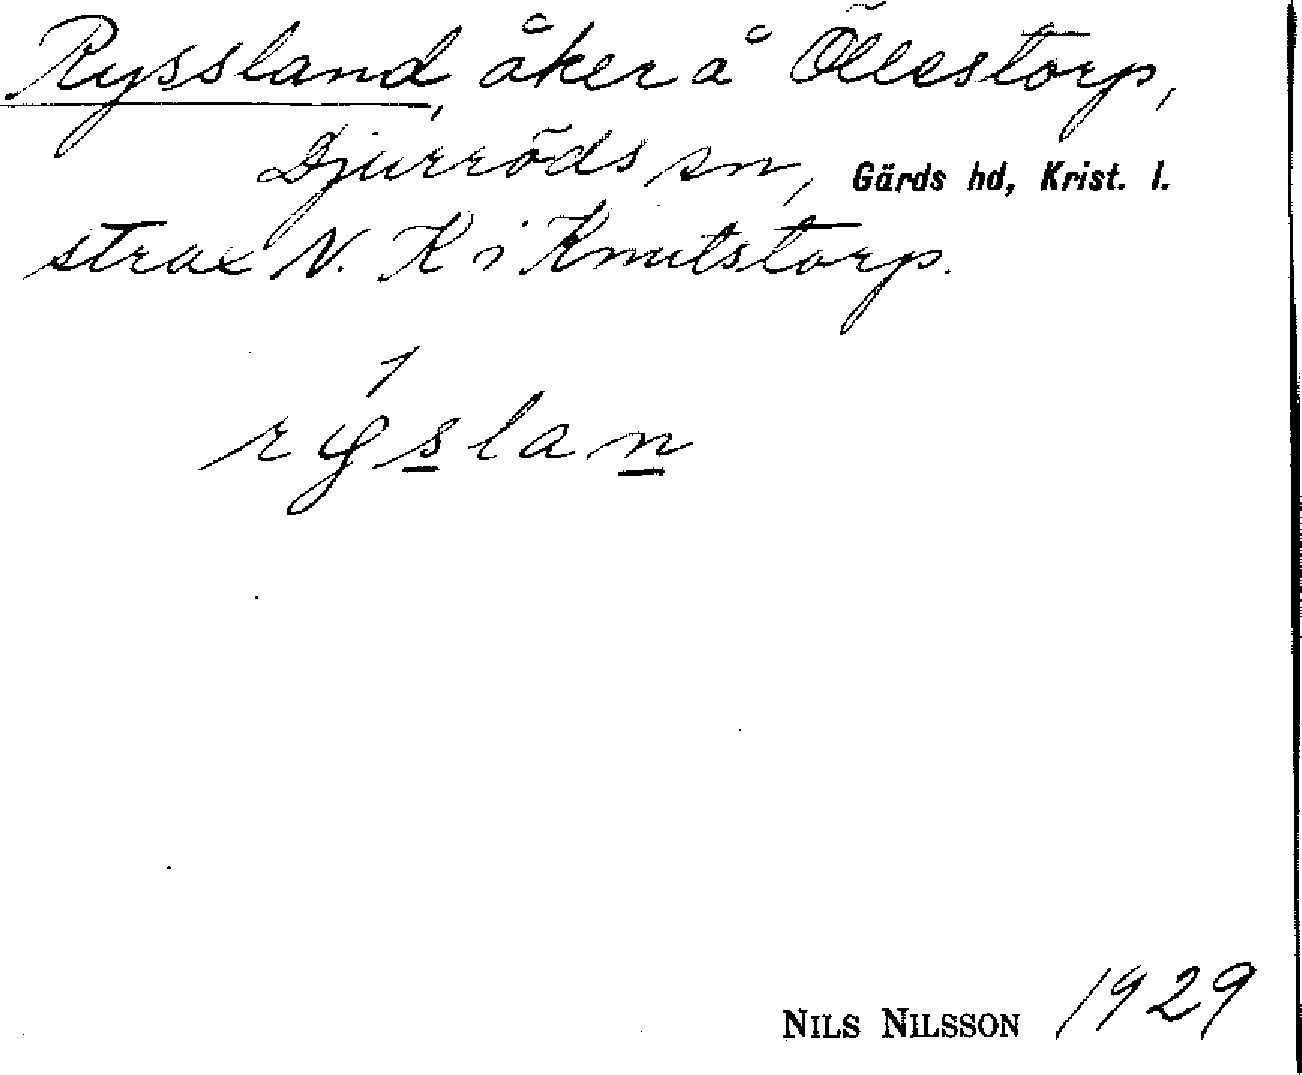 Ryssland, åker å Öllestorp,
Djurröds sn, Gärds hd, Krist. l.
strax N. K i Knutstorp.
rýslan
NILS NILSSON 1929